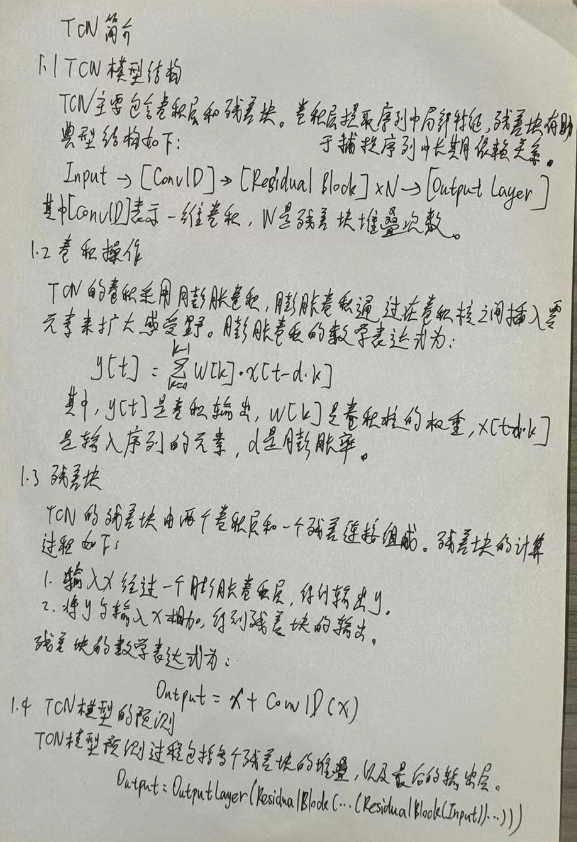 TCN 简介
1.1 TCN 模型结构
TCN主要包含卷积层和残差块。卷积层提取序列中局部特征,残差块有助
于捕捉序列中长期依赖关系。
典型结构如下:
Input → [Conv1D] → [Residual Block] ×N → [Output Layer]
其中[Conv1D]表示一维卷积, N是残差块堆叠次数。
1.2 卷积操作
TCN的卷积采用膨胀卷积,膨胀卷积通过在卷积核之间插入零
元素来扩大感受野。膨胀卷积的数学表达式为:
y[t] = \sum_{k=0}^{k-1} W[k]·x[t-d·k]
其中, y[t]是卷积输出, W[k]是卷积核的权重, x[t-d·k]
是输入序列的元素, d是膨胀率。
1.3 残差块
TCN的残差块由两个卷积层和一个残差连接组成。残差块的计算
过程如下:
1. 输入x经过一个膨胀卷积层, 得到输出y。
2. 将y与输入x相加, 得到残差块的输出。
残差块的数学表达式为:
Output = x + Conv1D(x)
1.4 TCN模型的预测
TCN模型预测过程包括多个残差块的堆叠, 以及最后的输出层。
Output = OutputLayer(ResidualBlock(...(ResidualBlock(Input))...)))